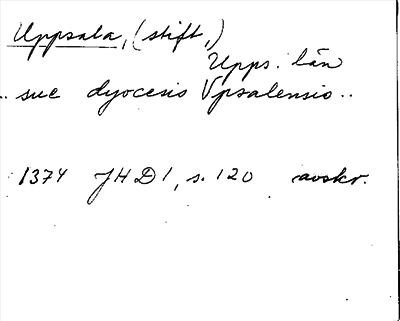 Uppsala, (stift,)
Upps. län
.. sue dyocesis Vpsalensis ..
1374 JHD 1, s. 120 avskr.